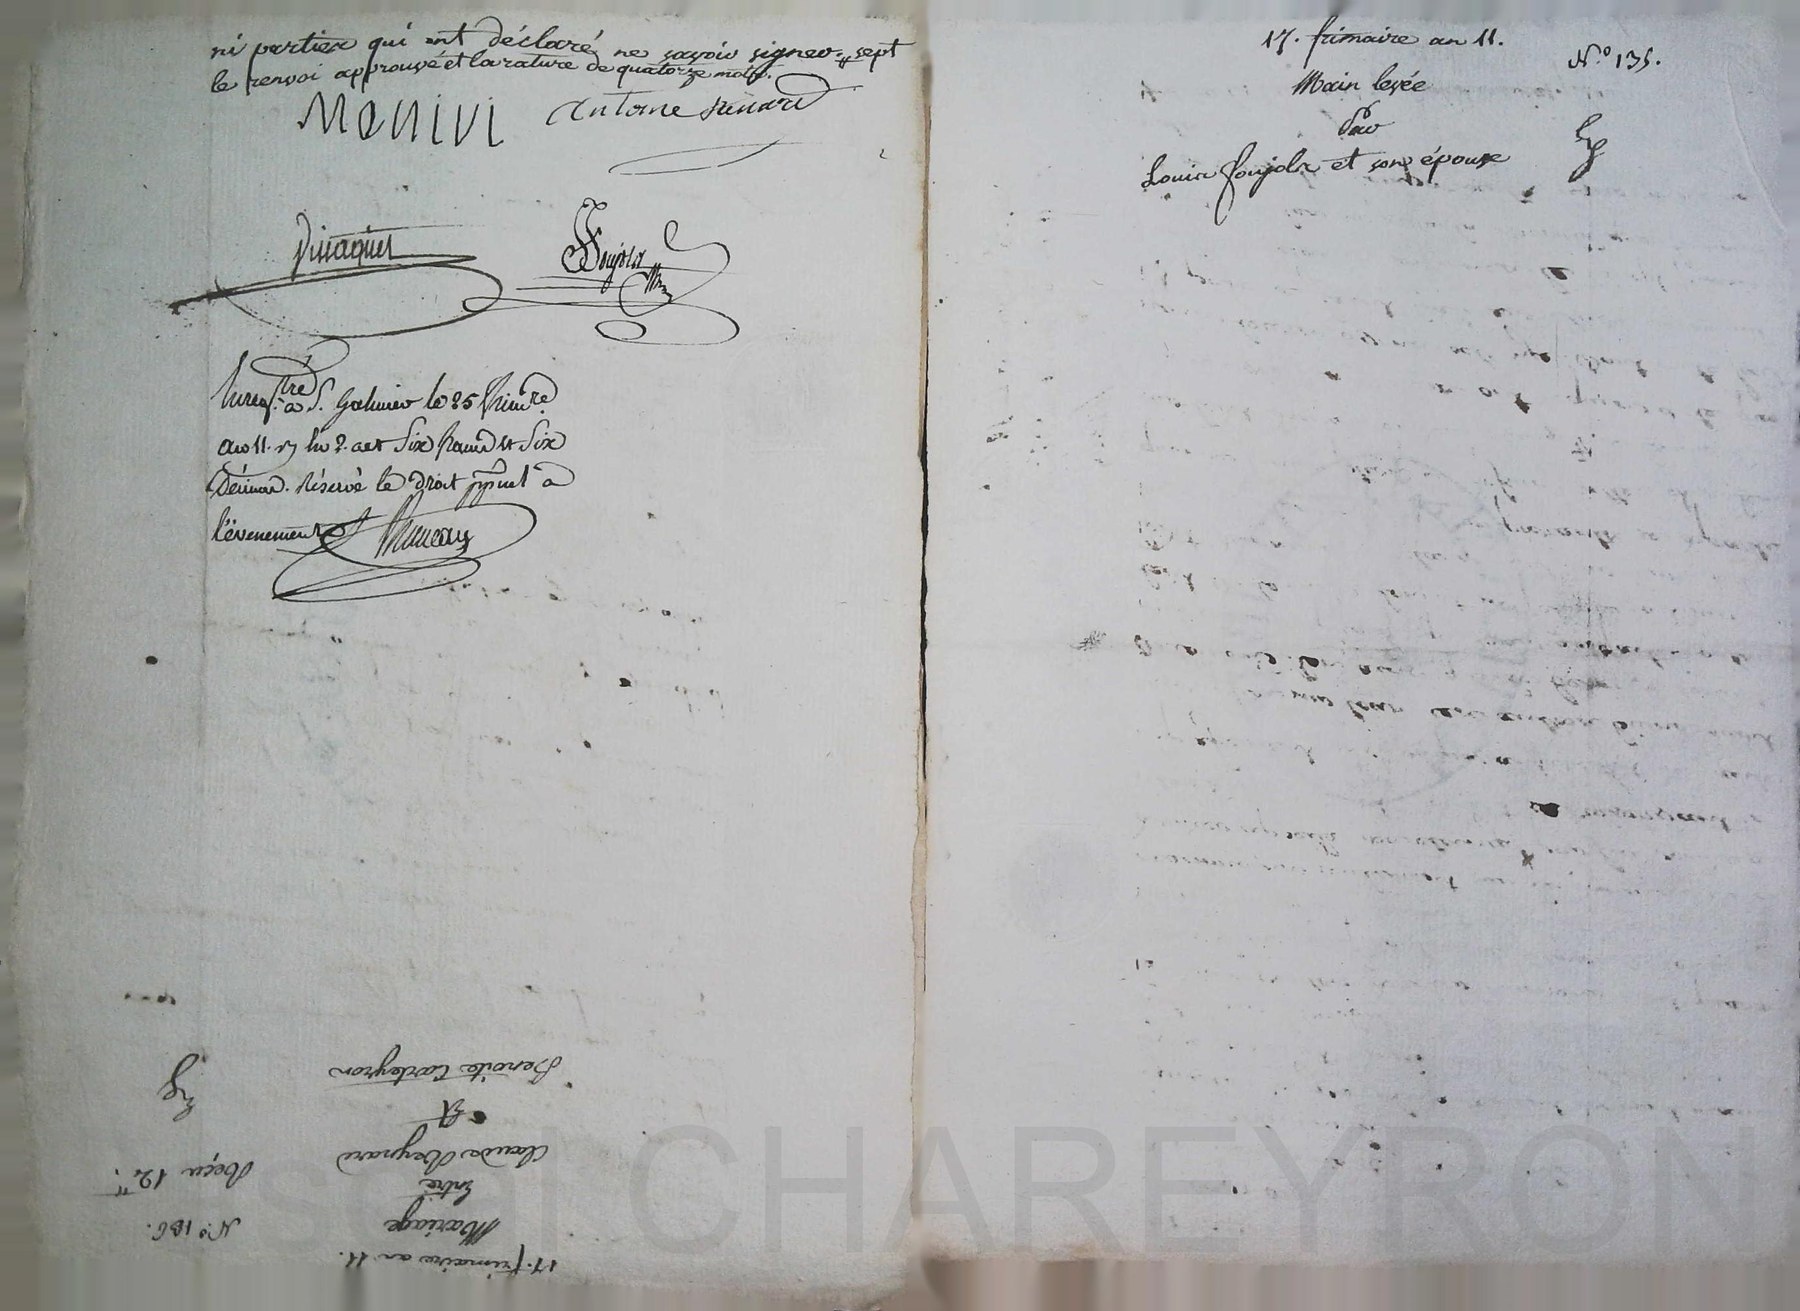 ni parties qui ont déclaré ne savoir signer =//= sept
le renvoi approuvé et la rature de quatorze mots.
Monivi Antoine
enreg.tré à S. Galmier le 25 frim.re
an 11. lu 2. act Six francs et Six
Décimes. Réservé le droit à
l'évenement
17. frimaire an 11.
N.º 186.
Mariage
Entre
Reçu 12.tt
Claude Reynard
Et
Benoite Carteyron
17. frimaire an 11.
N.º 135.
Main levée
Par
Louis Poujols et son épouse
CHAREYRON